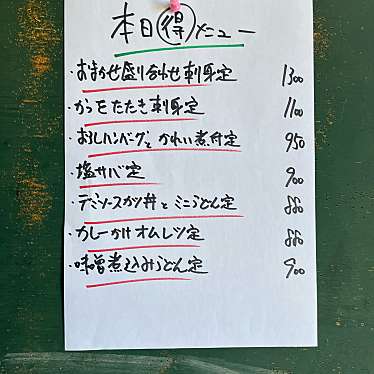 本日得メニュー
・おまかせ盛り合わせ刺身定 1300
・かつをたたき刺身定 1100
・おろしハンバーグとかれい煮付定 950
・塩サバ定 900
・デミソースカツ丼とミニうどん定 880
・カレーかけオムレツ定 880
・味噌煮込みうどん定 900